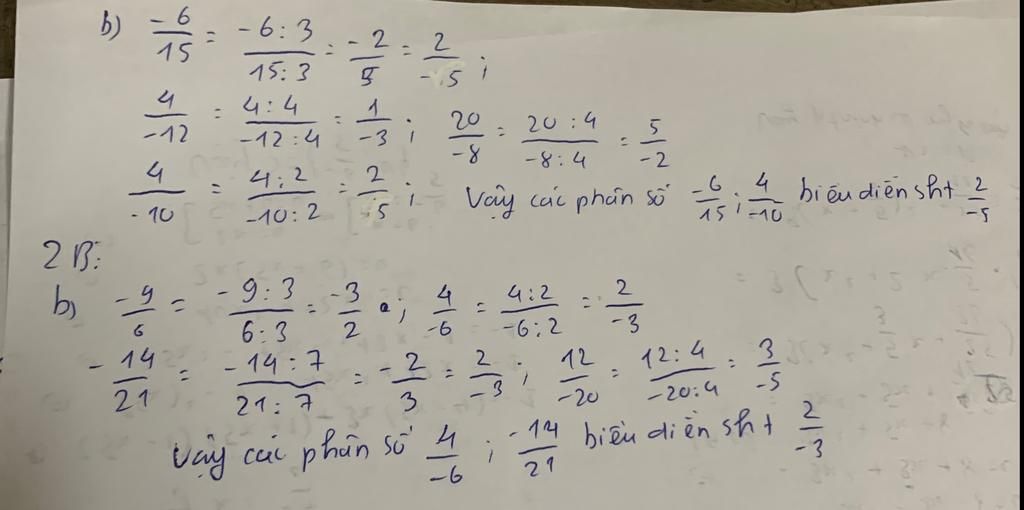 b) -6/15 = -6:3/15:3 = -2/5 = 2/-5 ;
4/-12 = 4:4/-12:4 = 1/-3 ; 20/-8 = 20:4/-8:4 = 5/-2
4/-10 = 4:2/-10:2 = 2/-5 ; Vậy các phân số -6/15 ; 4/-10 biểu diễn sht 2/-5
2B:
b) -9/6 = -9:3/6:3 = -3/2 ; 4/-6 = 4:2/-6:2 = 2/-3
-14/21 = -14:7/21:7 = -2/3 = 2/-3 ; 12/-20 = 12:4/-20:4 = 3/-5
Vậy các phân số 4/-6 ; -14/21 biểu diễn sht 2/-3